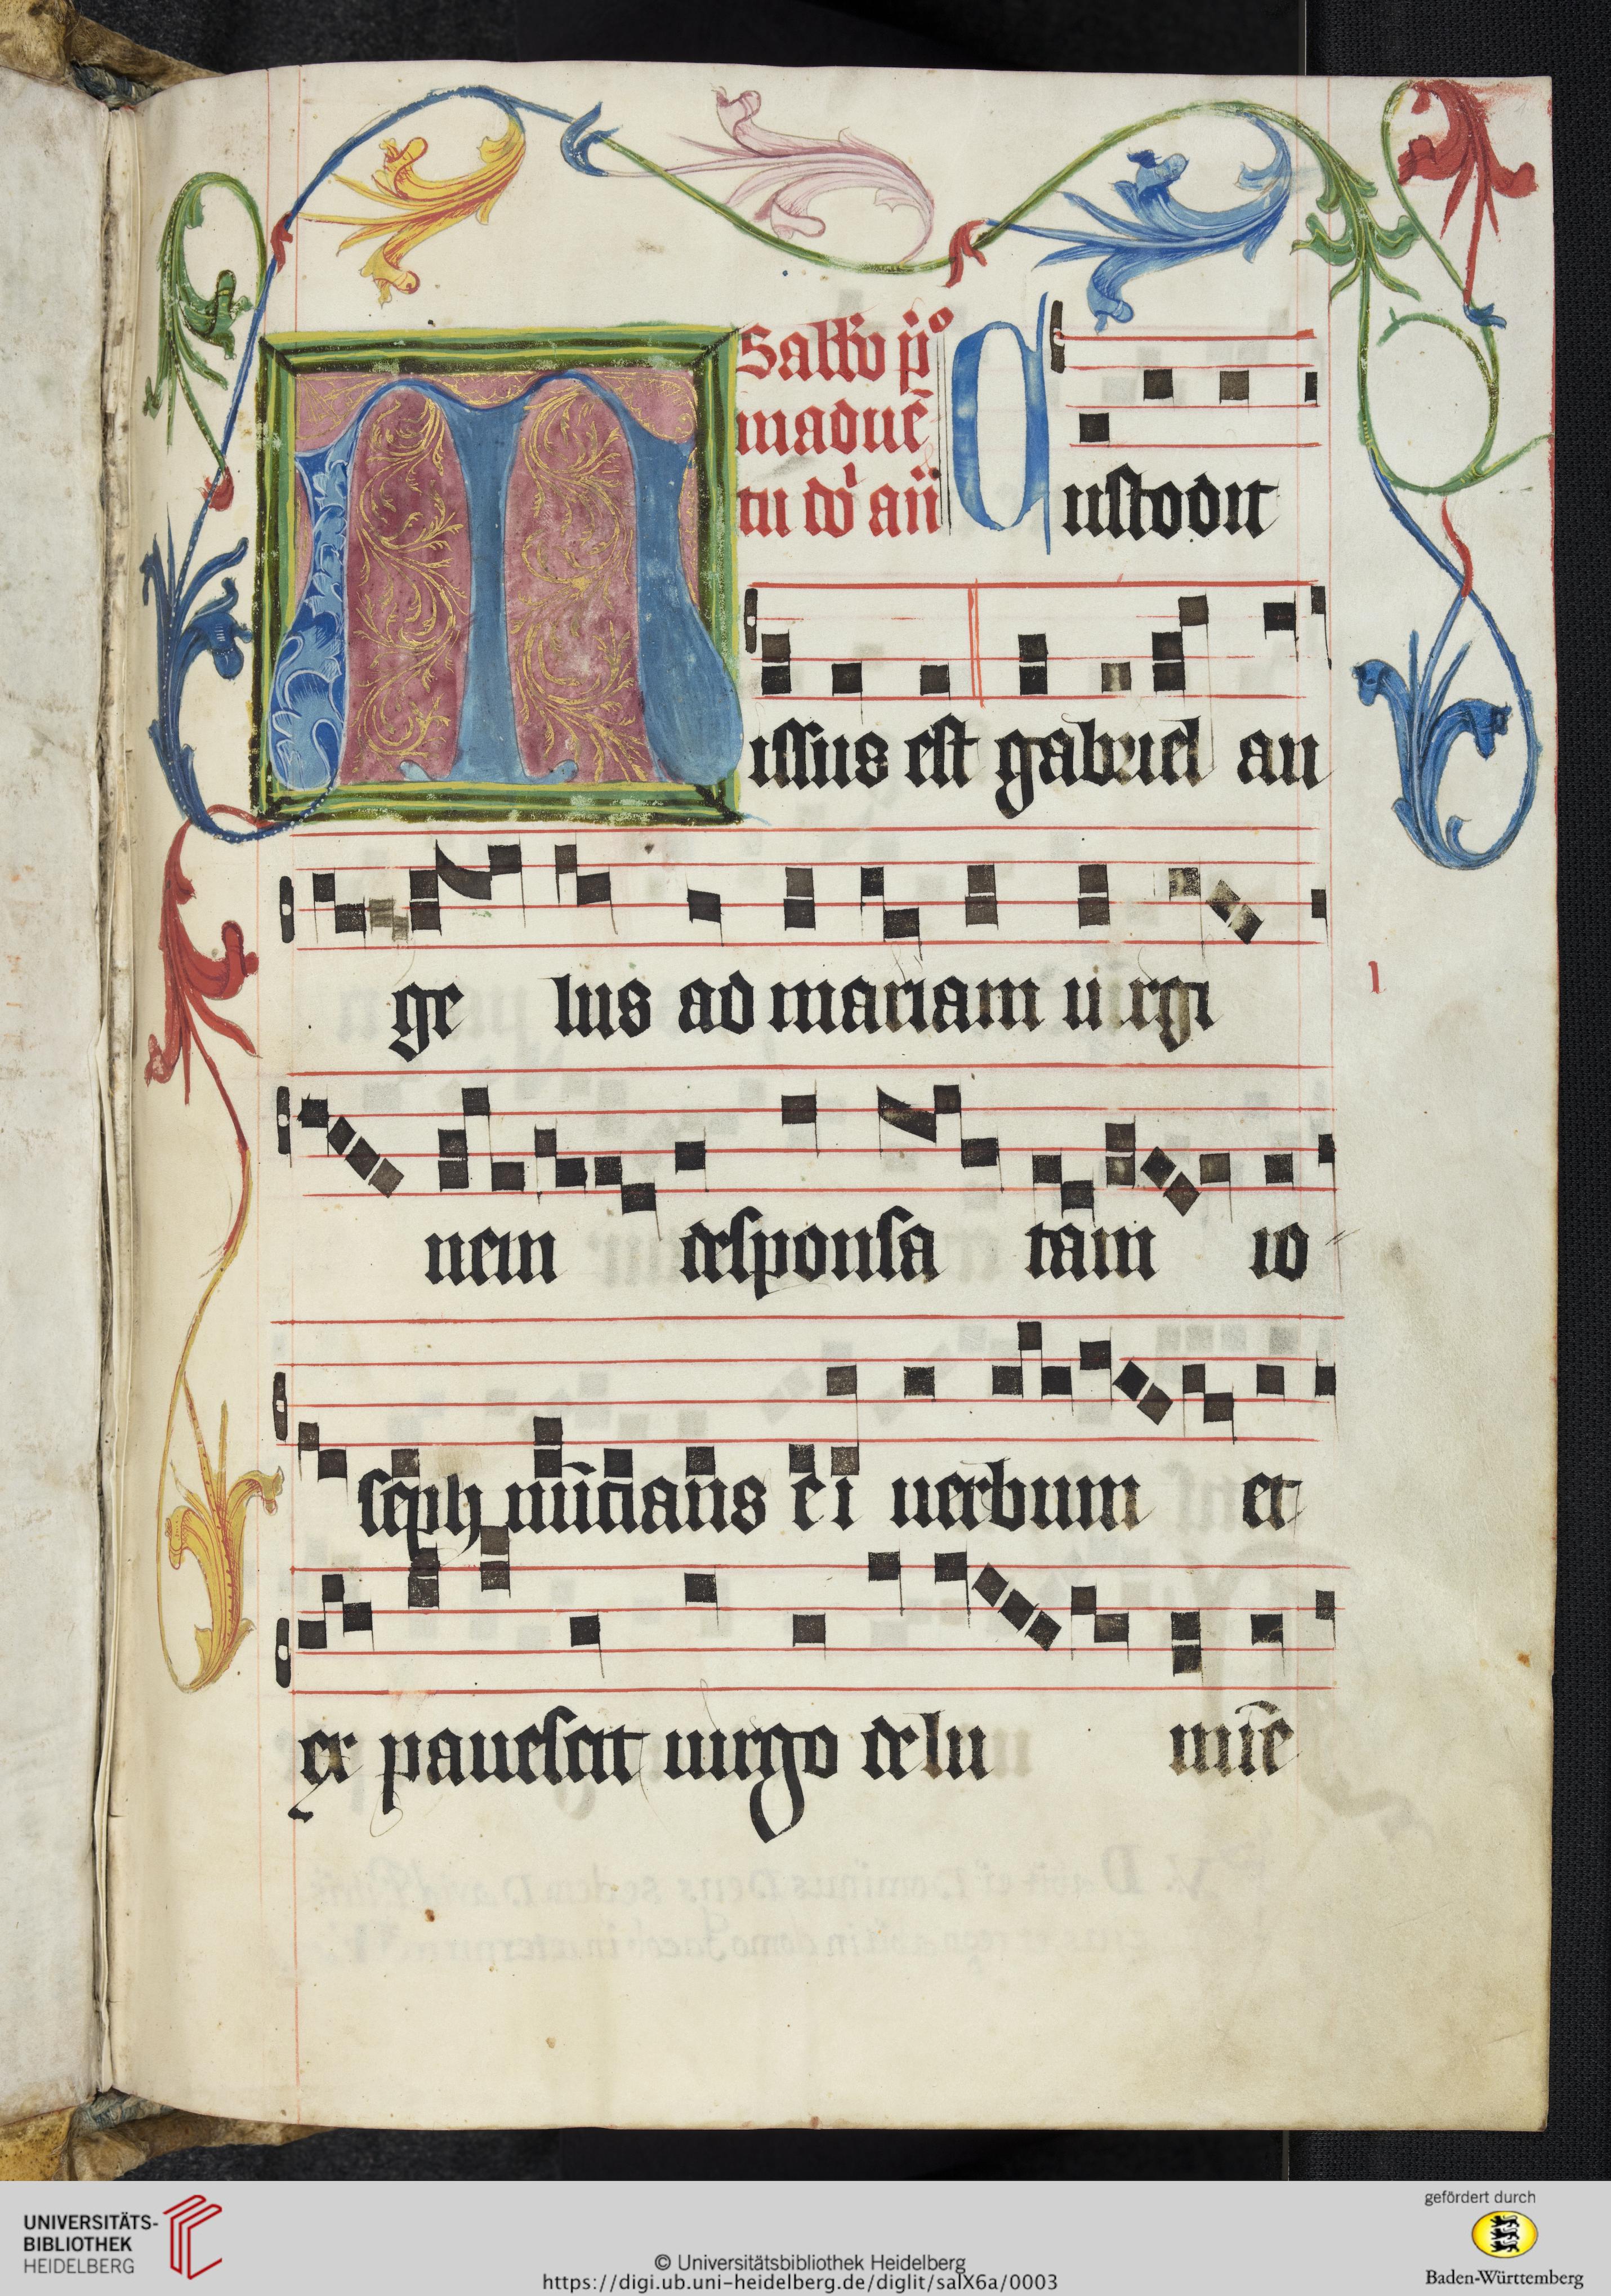 Sabb̄o p͛o
in aduē
tu dn̄i an̄
Custodit
Missus est gabriel an
ge lus ad mariam uirgi
nem desponsa tam io
seph nūcians ei uerbum et
ex pauescit uirgo de lu mīe
1
UNIVERSITÄTS-
BIBLIOTHEK
HEIDELBERG
© Universitätsbibliothek Heidelberg
https://digi.ub.uni-heidelberg.de/diglit/salX6a/0003
gefördert durch
Baden-Württemberg